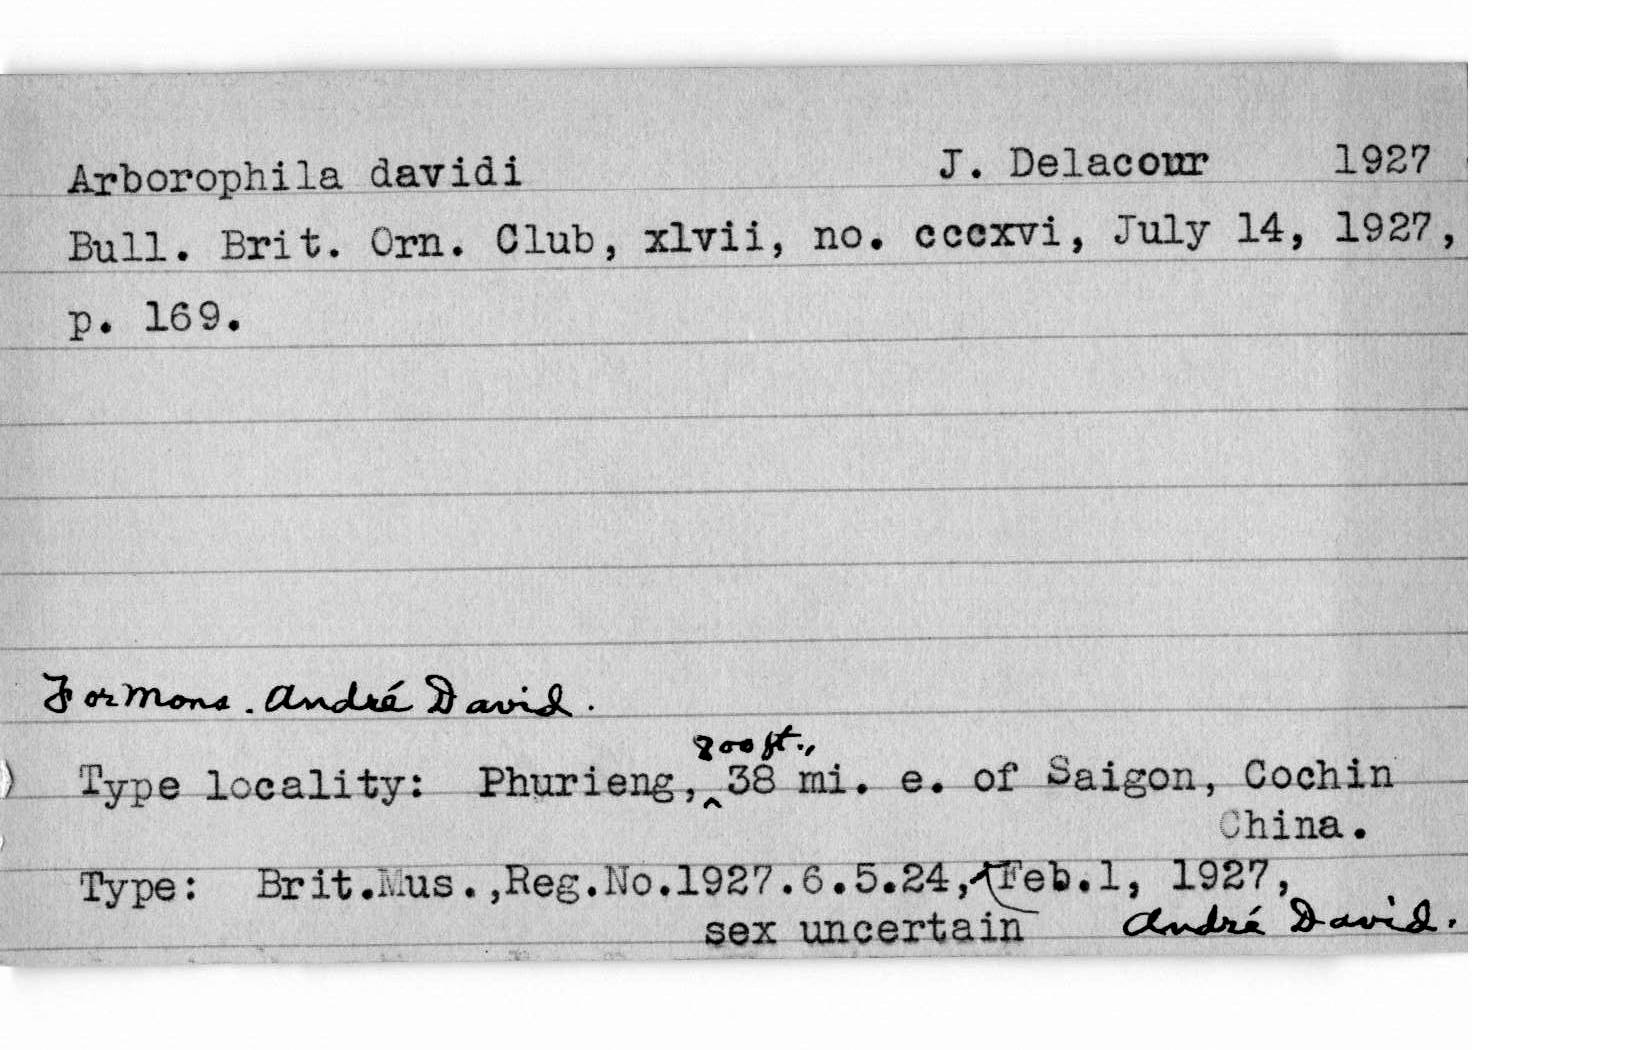 Arborophila davidi J. Delacour 1927
Bull. Brit. Orn. Club, xlvii, no. cccxvi, July 14, 1927,
p. 169.
For Mons. André David.
800 ft.,
Type locality: Phurieng,‸38 mi. e. of Saigon, Cochin
China.
Type: Brit.Mus.,Reg.No.1927.6.5.24, Feb.1, 1927,
sex uncertain André David.